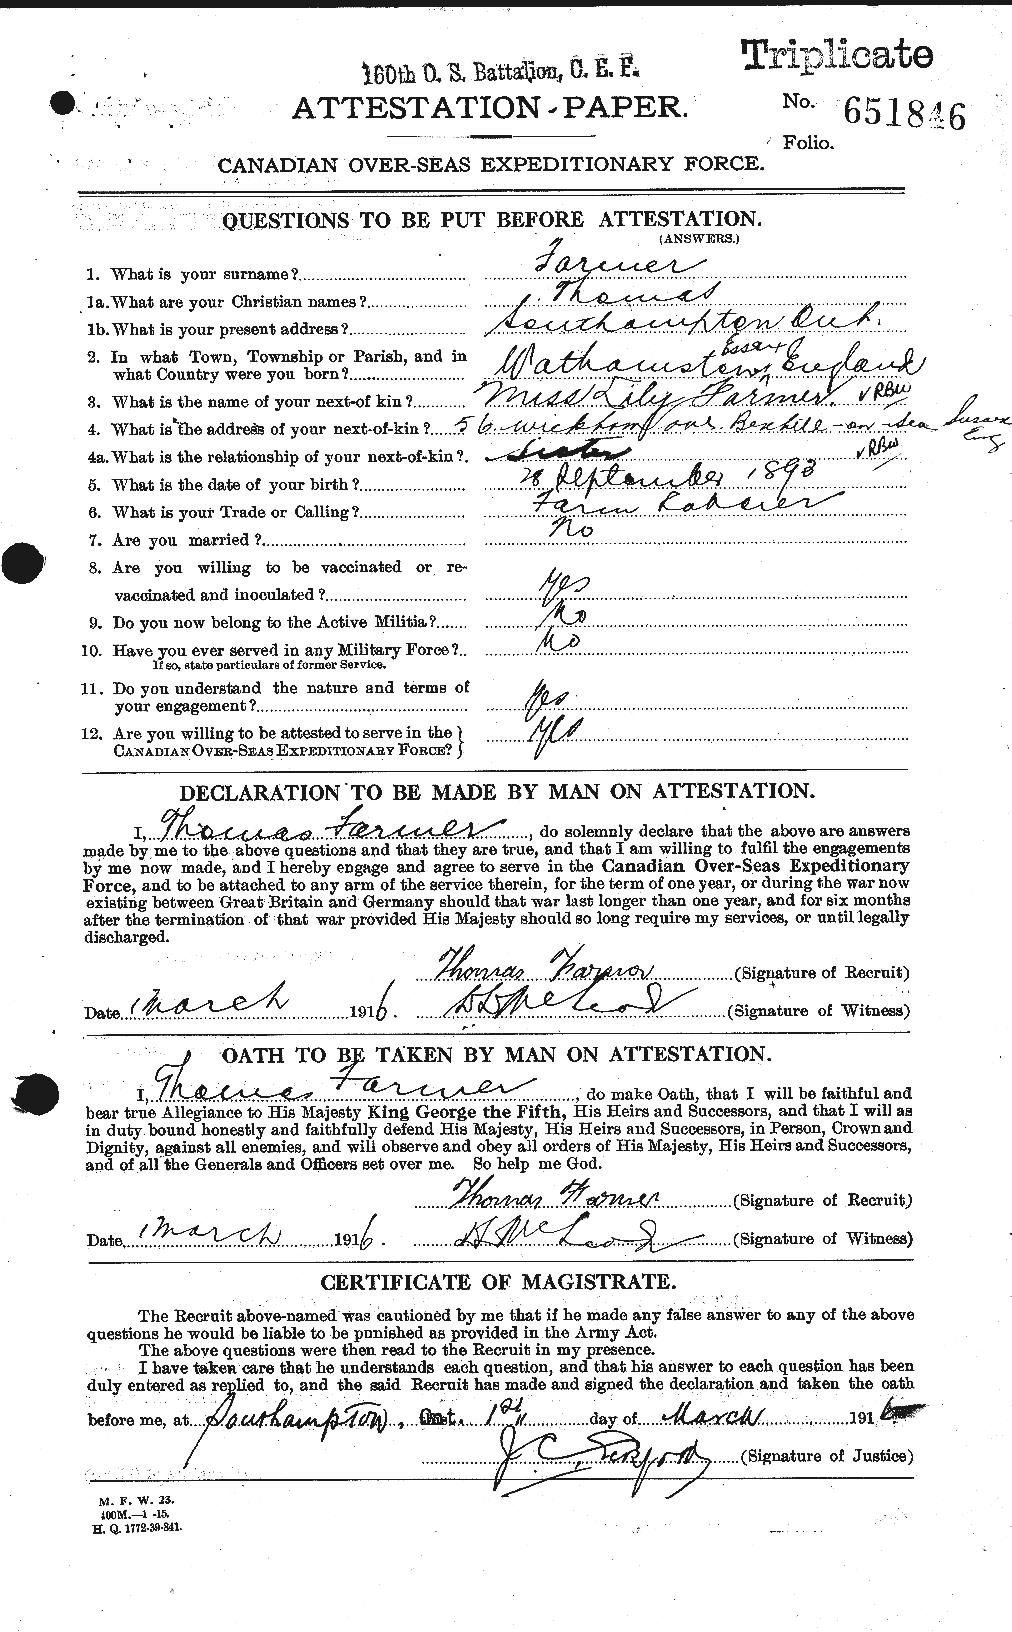 Triplicate
160th O. S. Battalion, C. E. F.
ATTESTATION-PAPER.
No. 651846
Folio.
CANADIAN OVER-SEAS EXPEDITIONARY FORCE.
QUESTIONS TO BE PUT BEFORE ATTESTATION.
(ANSWERS.)
1. What is your surname? Farmer
1a. What are your Christian names? Thomas
1b. What is your present address? Southampton Ont.
2. In what Town, Township or Parish, and in
what Country were you born? Wathamstow, Essex England
3. What is the name of your next-of kin? Miss Lily Farmer. √RBW
4. What is the address of your next-of-kin? 56 Bexhill-on-Sea Sussex Eng
4a. What is the relationship of your next-of-kin? Sister √RBW
5. What is the date of your birth? 28 September 1893
6. What is your Trade or Calling? Farm Laborer
7. Are you married? No
8. Are you willing to be vaccinated or re-
vaccinated and inoculated? Yes
9. Do you now belong to the Active Militia? No
10. Have you ever served in any Military Force? No
If so, state particulars of former Service.
11. Do you understand the nature and terms of
your engagement? Yes
12. Are you willing to be attested to serve in the
CANADIAN OVER-SEAS EXPEDITIONARY FORCE? Yes
DECLARATION TO BE MADE BY MAN ON ATTESTATION.
I, Thomas Farmer, do solemnly declare that the above are answers
made by me to the above questions and that they are true, and that I am willing to fulfil the engagements
by me now made, and I hereby engage and agree to serve in the Canadian Over-Seas Expeditionary
Force, and to be attached to any arm of the service therein, for the term of one year, or during the war now
existing between Great Britain and Germany should that war last longer than one year, and for six months
after the termination of that war provided His Majesty should so long require my services, or until legally
discharged.
Thomas Farmer (Signature of Recruit)
Date 1 March 1916. (Signature of Witness)
OATH TO BE TAKEN BY MAN ON ATTESTATION.
I, Thomas Farmer, do make Oath, that I will be faithful and
bear true Allegiance to His Majesty King George the Fifth, His Heirs and Successors, and that I will as
in duty bound honestly and faithfully defend His Majesty, His Heirs and Successors, in Person, Crown and
Dignity, against all enemies, and will observe and obey all orders of His Majesty, His Heirs and Successors,
and of all the Generals and Officers set over me. So help me God.
Thomas Farmer (Signature of Recruit)
Date 1 March 1916. (Signature of Witness)
CERTIFICATE OF MAGISTRATE.
The Recruit above-named was cautioned by me that if he made any false answer to any of the above
questions he would be liable to be punished as provided in the Army Act.
The above questions were then read to the Recruit in my presence.
I have taken care that he understands each question, and that his answer to each question has been
duly entered as replied to, and the said Recruit has made and signed the declaration and taken the oath
before me, at Southampton, Ont. 1st day of March 1916
(Signature of Justice)
M. F. W. 23.
400M.—1-15.
H. Q. 1772-39-841.